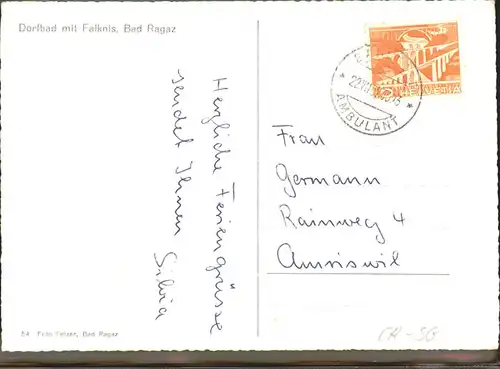 Dorfbad mit Falknis, Bad Ragaz
Herzliche Feriengrüsse
sendet Ihnen
Silvia
AMBULANT
HELVETIA
Frau
Germann
Rainweg 4
Amriswil
54 Foto Fetzer, Bad Ragaz
CH-SG